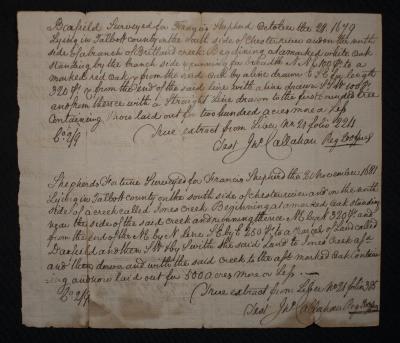 Barfield Surveyed for Francis Shepherd October the 28 1679
Lying in Talbott county on the South side of Chesterriver and on the north
side of a branch of creek Begining at a marked white Oak
standing by the branch side running for breadth N N 100 p to a
marked red Oak & from the said Oak by a line drawn for length
320 p & from the end of the said line with a line drawn 100 p
and from thence with a Straight line drawn to the first bounded tree
Containing & now laid out for two hundred acres more or less
True extract from Liber No 21 folio
Test Jno Callahan Reg
Shepherds Fortune Surveyed for Francis Shepherd the November 1681
Lying in Talbott County on the south side of chester river and on the north
side of a creek called Creek Begining at a marked Oak standing
near the side of the said Creek and running thence N by E 320 p and
from the end of the N by line E by 250 p to a parcel of Land called
Barfield and then by with the said Land to Creek aft
and then down and with the said Creek to the aft marked Oak Contain
ing and now laid out for 500 acres more or Less
True extract from Liber No 21 folio 385
Test Jno Callahan Reg